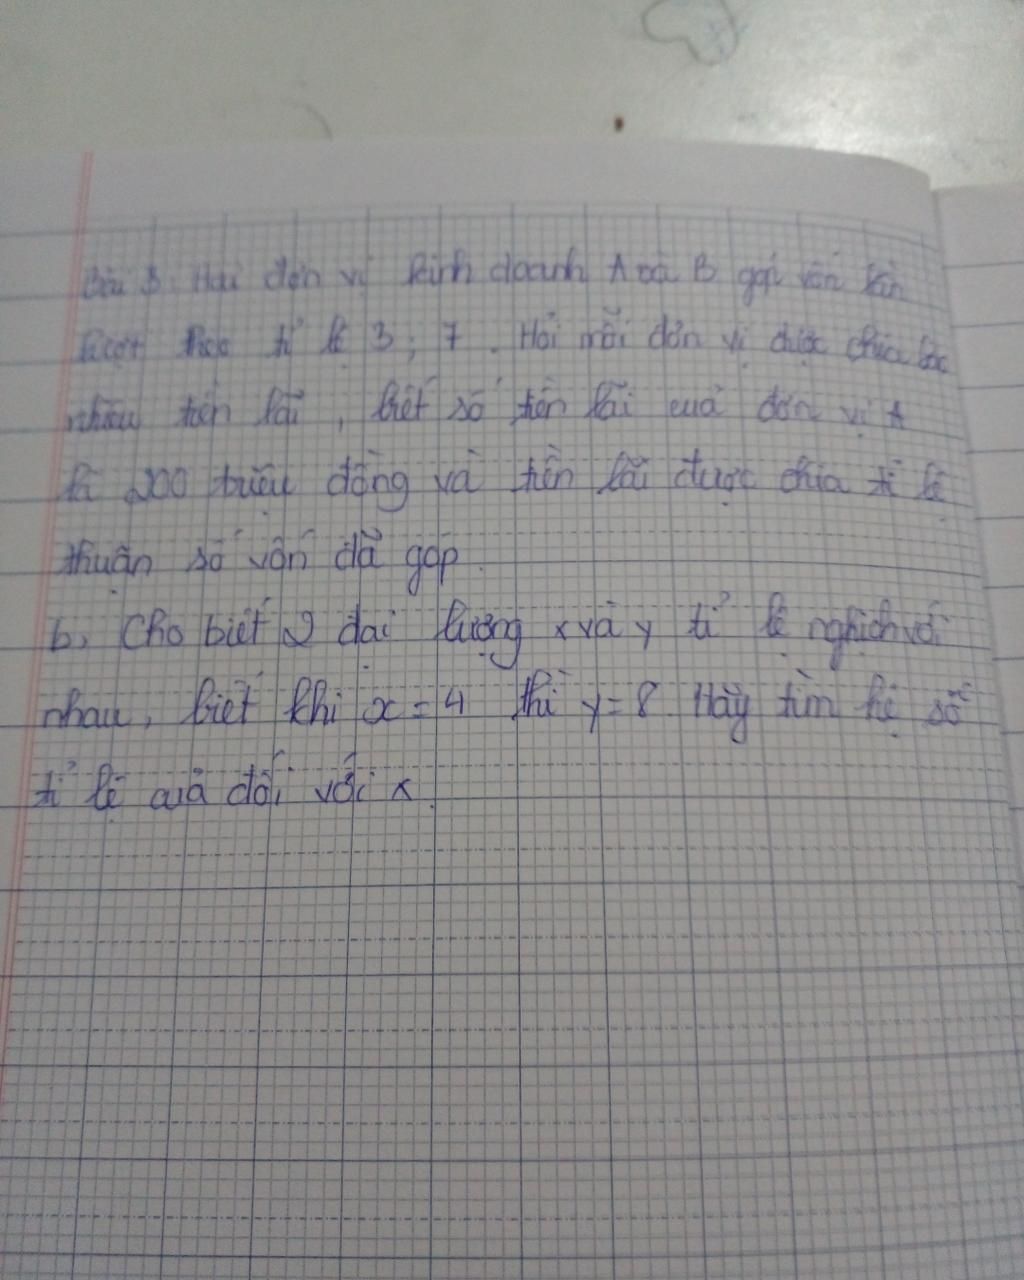 Bài 3. Hai đơn vị kinh doanh A và B góp vốn lần
lượt theo tỉ lệ 3; 7. Hỏi mỗi đơn vị được chia bao
nhiêu tiền lãi, biết số tiền lãi cuả đơn vị A
là 200 triệu đồng và tiền lãi được chia tỉ lệ
thuận số vốn đã góp.
b, Cho biết 2 đại lượng x và y tỉ lệ nghịch với
nhau, biết khi x = 4 thì y = 8. Hãy tìm hệ số
tỉ lệ cuả đối với x.